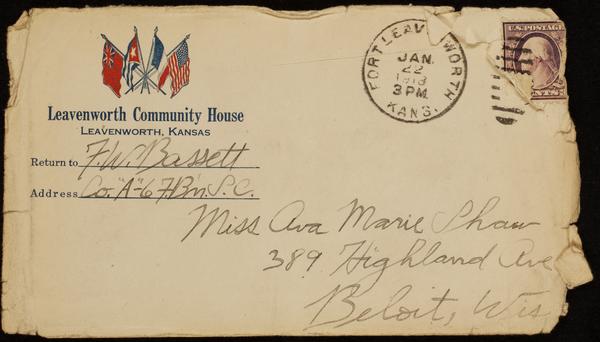 Leavenworth Community House
LEAVENWORTH, KANSAS
Return to F.W. Bassett
Address Co. "A"-6 F.B'n. S.C.
FORT LEAVENWORTH
JAN.
22
1918
3 PM
KANS.
U.S. POSTAGE
Miss Ava Marie Shaw
389 Highland Ave
Beloit, Wis